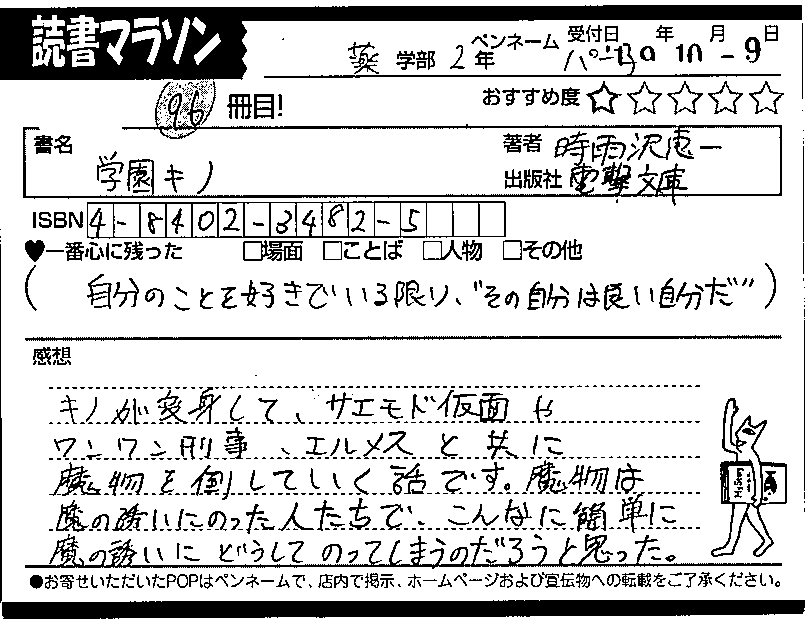 読書マラソン
受付日 年 月 日
薬 学部 2年 ペンネーム 9 10 -9
96 冊目!
おすすめ度 ☆☆☆☆☆
書名 学園キノ
著者 時雨沢恵一
出版社 電撃文庫
ISBN 4-8402-3482-5
♥一番心に残った □場面 □ことば □人物 □その他
(自分のことを好きでいる限り、"その自分は良い自分だ")
感想
キノが変身して、サエモド仮面や
ワンワン刑事、エルメスと共に
魔物を倒していく話です。魔物は
魔の誘いにのった人たちで、こんなに簡単に
魔の誘いにどうしてのってしまうのだろうと思った。
●お寄せいただいたPOPはペンネームで、店内で掲示、ホームページおよび宣伝物への転載をご了承ください。